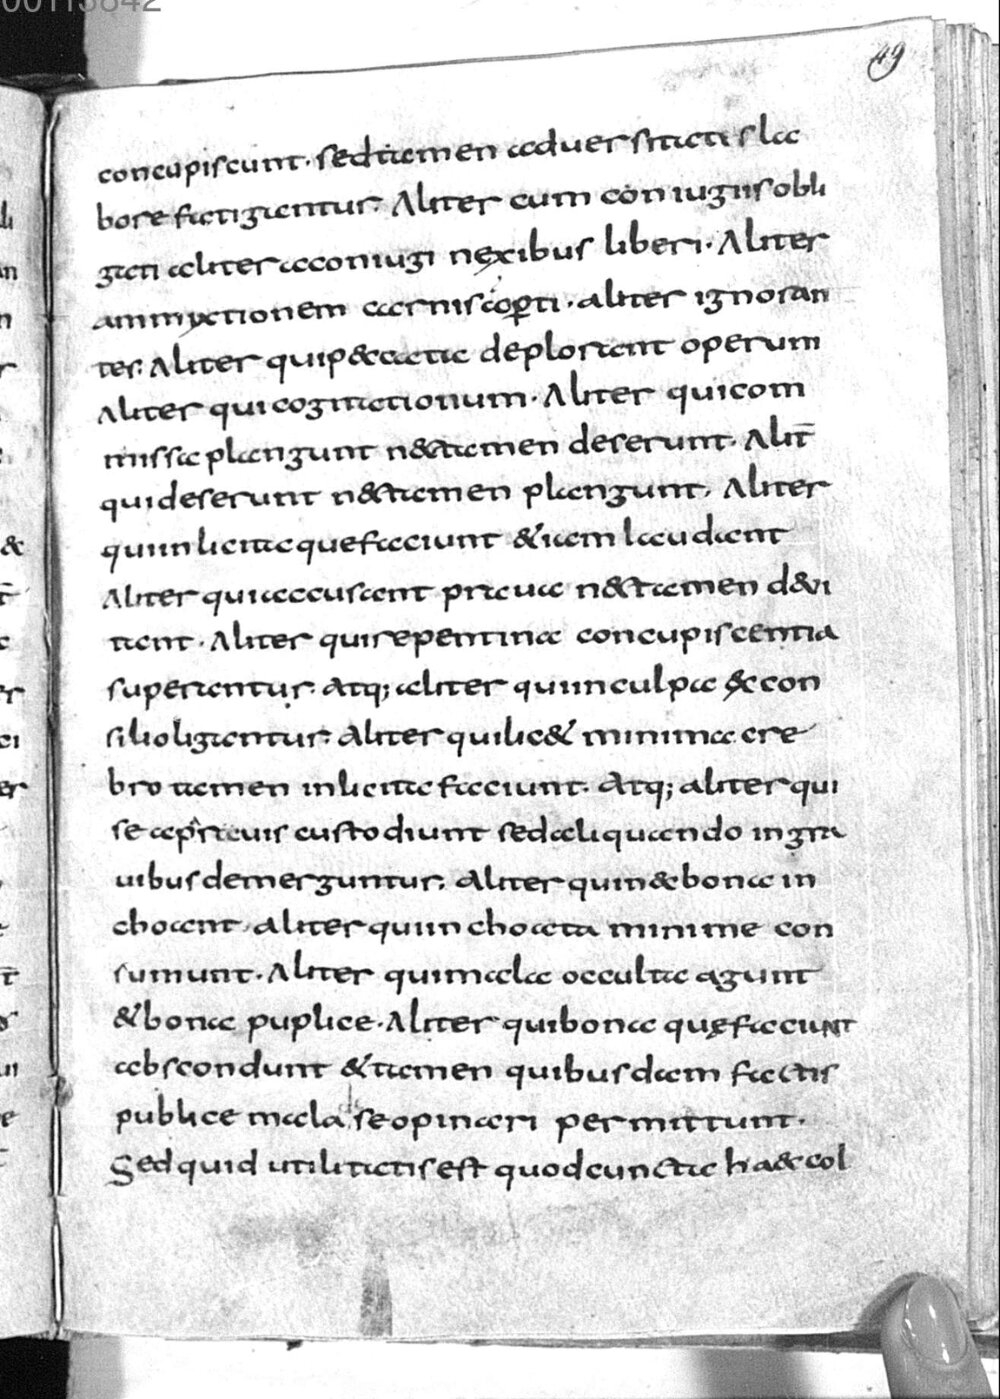 00113842
49
concupiscunt. sed tamen aduersitatis la
bore fatigantur. Aliter cum coniugiis obli
gati aliter a coniugi nexibus liberi. Aliter
ammyxtionem carnis coꝑti. aliter ignoran
tes. Aliter qui p&ccata deplorant operum
Aliter qui cogitationum. Aliter qui com
missa plangunt n&tamen deserunt. Alit̄
qui deserunt n&tamen plangunt. Aliter
qui inlicita que faciunt & iam laudant
Aliter qui accusant praua n& tamen d&vi
tant. Aliter qui repentina concupiscentia
superantur. Atq; aliter qui in culpa & con
silio ligantur. Aliter qui lic& minima cre
bro tamen inlicita faciunt. Atq; aliter qui
se a prauis custodiunt sed aliquando in gra
uibus demerguntur. Aliter qui n& bona in
choant. aliter qui inchoata minime con
sumunt. Aliter qui mala occulta agunt
& bona puplice. Aliter qui bona quę faciunt
abscondunt & tamen quibusdam factis
publice mala se opinari permittunt.
Sed quid utilitatis est quod cuncta ha&c col